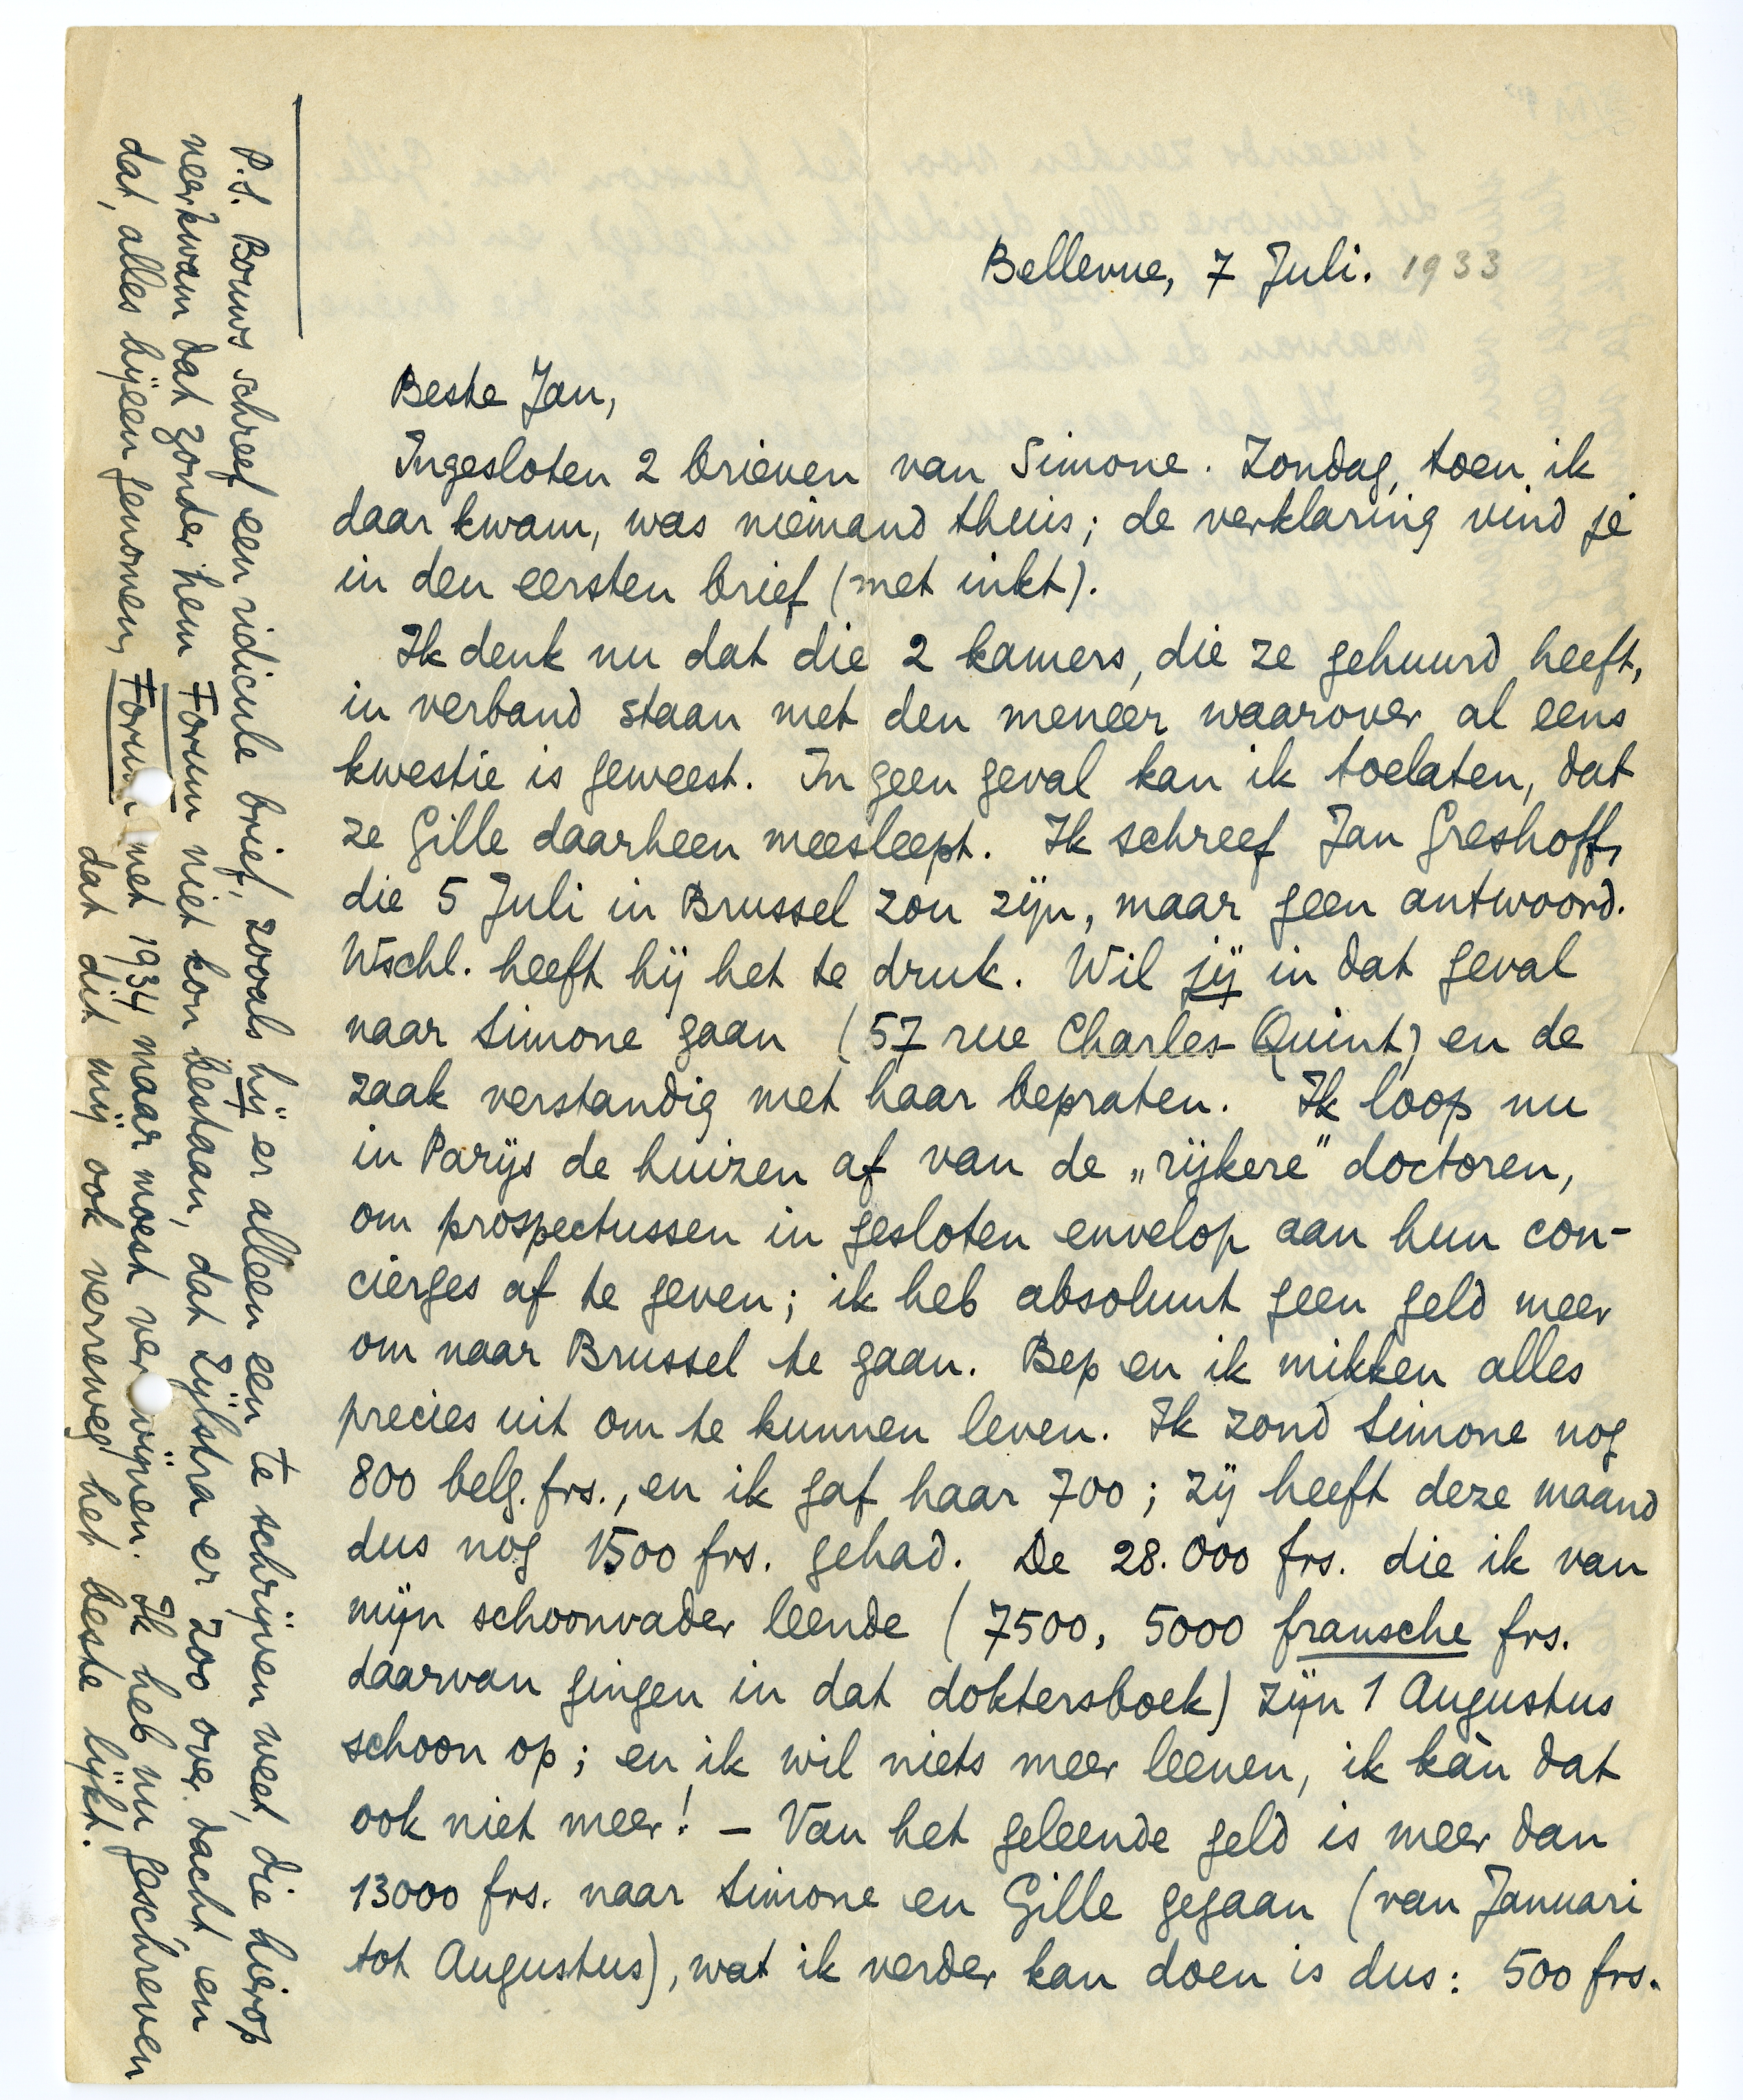 Bellevue, 7 Juli. 1933
Beste Jan,
Ingesloten 2 brieven van Simone. Zondag, toen ik
daar kwam, was niemand thuis; de verklaring vind je
in den eersten brief (met inkt).
Ik denk nu dat die 2 kamers, die ze gehuurd heeft,
in verband staan met den meneer waarover al eens
kwestie is geweest. In geen geval kan ik toelaten, dat
ze Gille daarheen meesleept. Ik schreef Jan Greshoff,
die 5 Juli in Brussel zou zijn, maar geen antwoord.
Wschl. heeft hij het te druk. Wil jij in dat geval
naar Simone gaan (57 rue Charles-Quint) en de
zaak verstandig met haar bepraten. Ik loop nu
in Parijs de huizen af van de „rijkere" doctoren,
om prospectussen in gesloten envelop aan hun con-
cierges af te geven; ik heb absoluut geen geld meer
om naar Brussel te gaan. Bep en ik mikken alles
precies uit om te kunnen leven. Ik zond Simone nog
800 belg. frs., en ik gaf haar 700; zij heeft deze maand
dus nog 1500 frs. gehad. De 28.000 frs. die ik van
mijn schoonvader leende (7500, 5000 fransche frs.
daarvan gingen in dat doktersboek) zijn 1 Augustus
schoon op; en ik wil niets meer leenen, ik kàn dat
ook niet meer! – Van het geleende geld is meer dan
13000 frs. naar Simone en Gille gegaan (van Januari
tot Augustus), wat ik verder kan doen is dus: 500 frs.
P.S. Bouws schreef een ridicule brief, zooals hij er alleen een te schrijven weet, die hierop
neerkwam dat zonder hem Forum niet kon bestaan, dat Zijlstra er zoo over dacht, en
dat, alles bijeen genomen, Forum met 1934 maar moest verdwijnen. Ik heb nu geschreven
dat dit mij ook verreweg het beste lijkt.